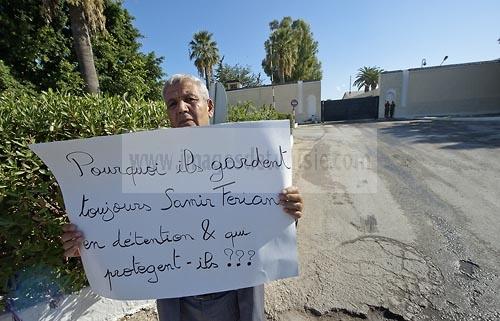 Pourquoi ils gardent
toujours Samir Feriani
en détention & qui
protegent-ils ???